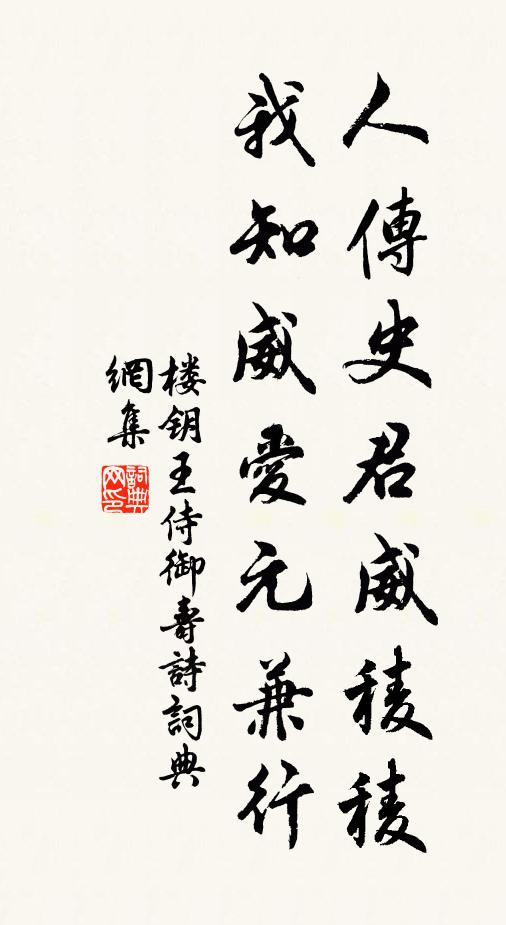 人傳史君威稜稜
我知威愛元兼行
楼钥王侍御壽詩詞典
網集
詞典網印